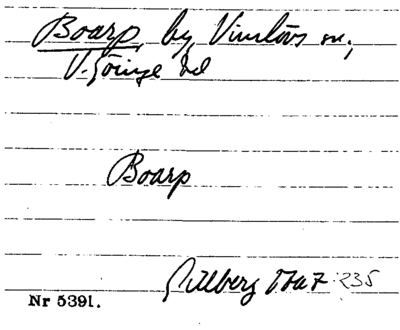 Boarp, by, Vinslövs sn.,
V. Göinge hd
Boarp
Gillberg 1767 235
Nr 5391.